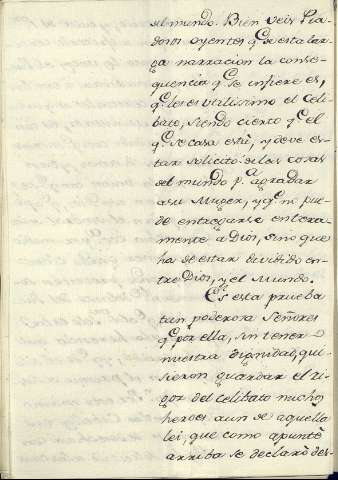 del mundo. Bien veis Pia-
dosos oyentes q.e de esta lar-
ga narracion la conse-
quencia q.e se infiere es,
q.e les es utilissimo el Celi-
bato, siendo cierto q.e el
q.e se casa està, y deve es-
tar solicito de las cosas
del mundo p.a agradar
a su Muger, y q.e no pue-
de entregarse entera-
mente a Dios, sino que
ha de estar dividido en-
tre Dios, y el Mundo.
Es esta prueba
tan poderosa Señores
q.e por ella, sin tener
nuestra dignidad, qui-
sieron guardar el ri-
gor del Celibato muchos
heroes aun de aquella
lei, que como apuntè
arriba se declarò des-